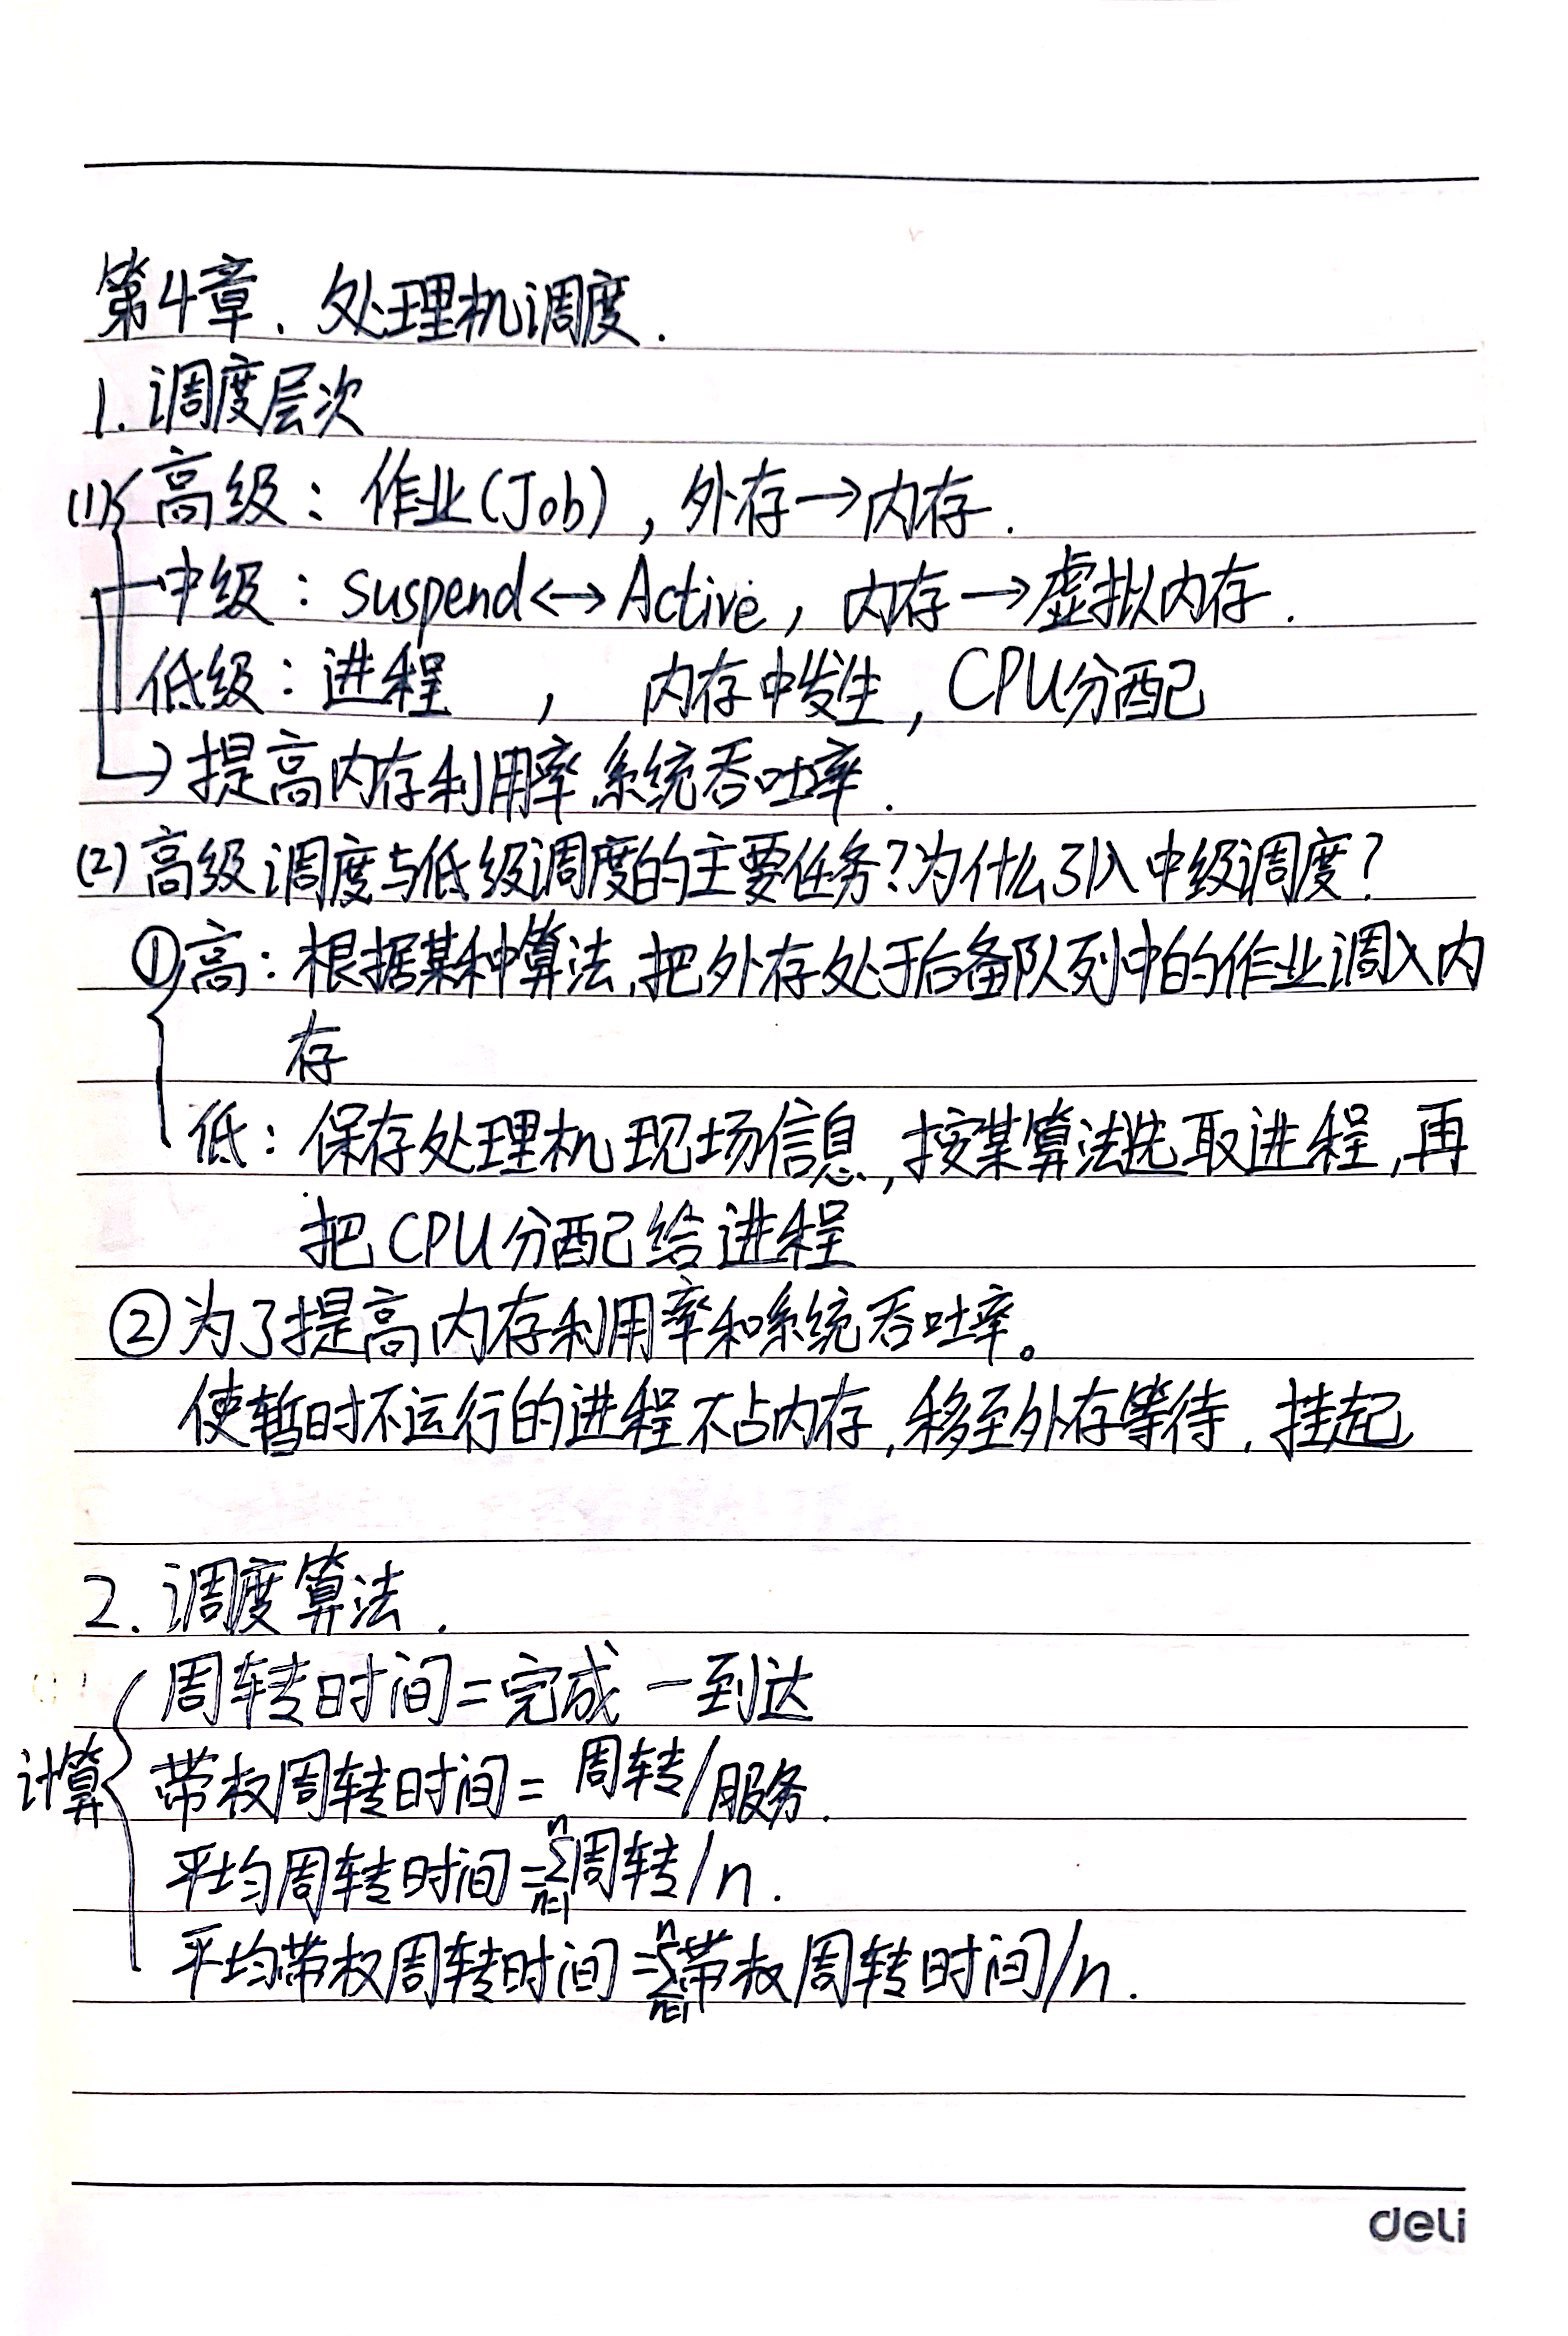 第4章、处理机调度.
1. 调度层次
(1) 高级：作业(Job)，外存→内存.
中级：suspend<->Active，内存→虚拟内存.
低级：进程 ， 内存中发生，CPU分配
→提高内存利用率、系统吞吐率.
(2) 高级调度与低级调度的主要任务？为什么引入中级调度？
①高：根据某种算法，把外存处于后备队列中的作业调入内
存
低：保存处理机现场信息，按某算法选取进程，再
把CPU分配给进程
②为了提高内存利用率和系统吞吐率。
使暂时不运行的进程不占内存，移至外存等待，挂起
2. 调度算法.
周转时间=完成-到达
计算 带权周转时间=周转/服务.
平均周转时间=∑ⁿₙ₌₁周转/n.
平均带权周转时间=∑ⁿₙ₌₁带权周转时间/n.
deli